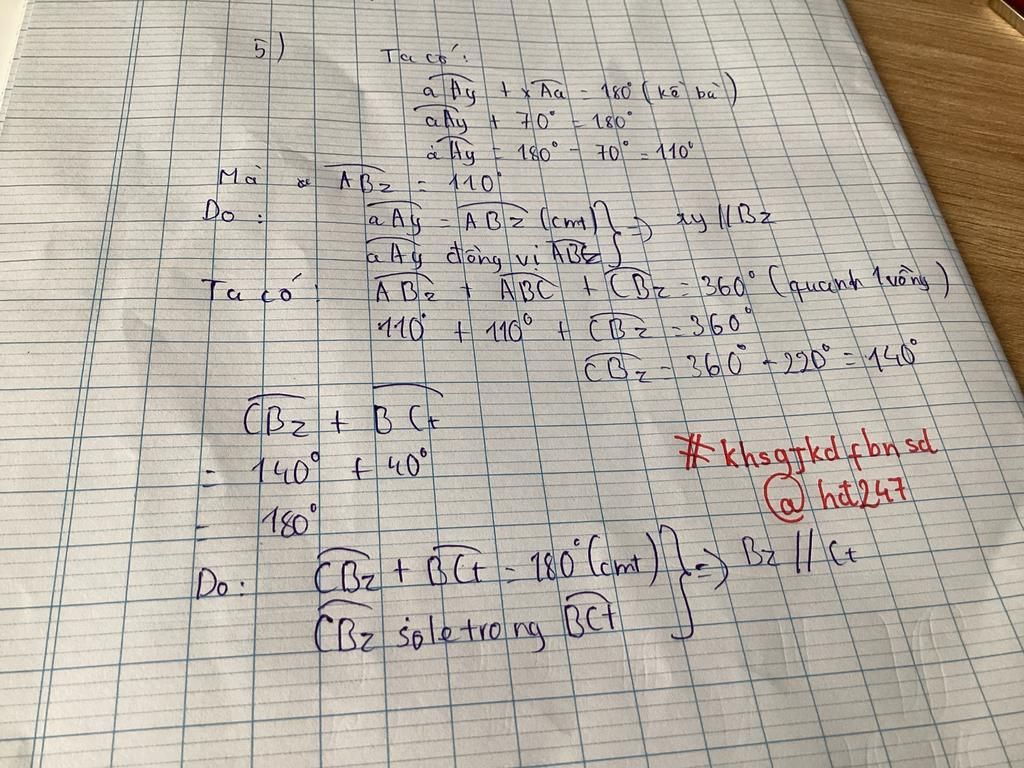 5)
Ta có:
aAy + xAa = 180° (kề bù)
aAy + 70° = 180°
aAy = 180° - 70° = 110°
Mà ABz = 110°
Do: aAy = ABz (cmt) } => xy // Bz
aAy đồng vị ABz
Ta có: ABz + ABC + CBz = 360° (quanh 1 vòng)
110° + 110° + CBz = 360°
CBz = 360° - 220° = 140°
CBz + BCt
= 140° + 40°
= 180°
#khsgjkdfbnsd
@hct247
Do: CBz + BCt = 180° (cmt) } => Bz // Ct
CBz so le trong BCt